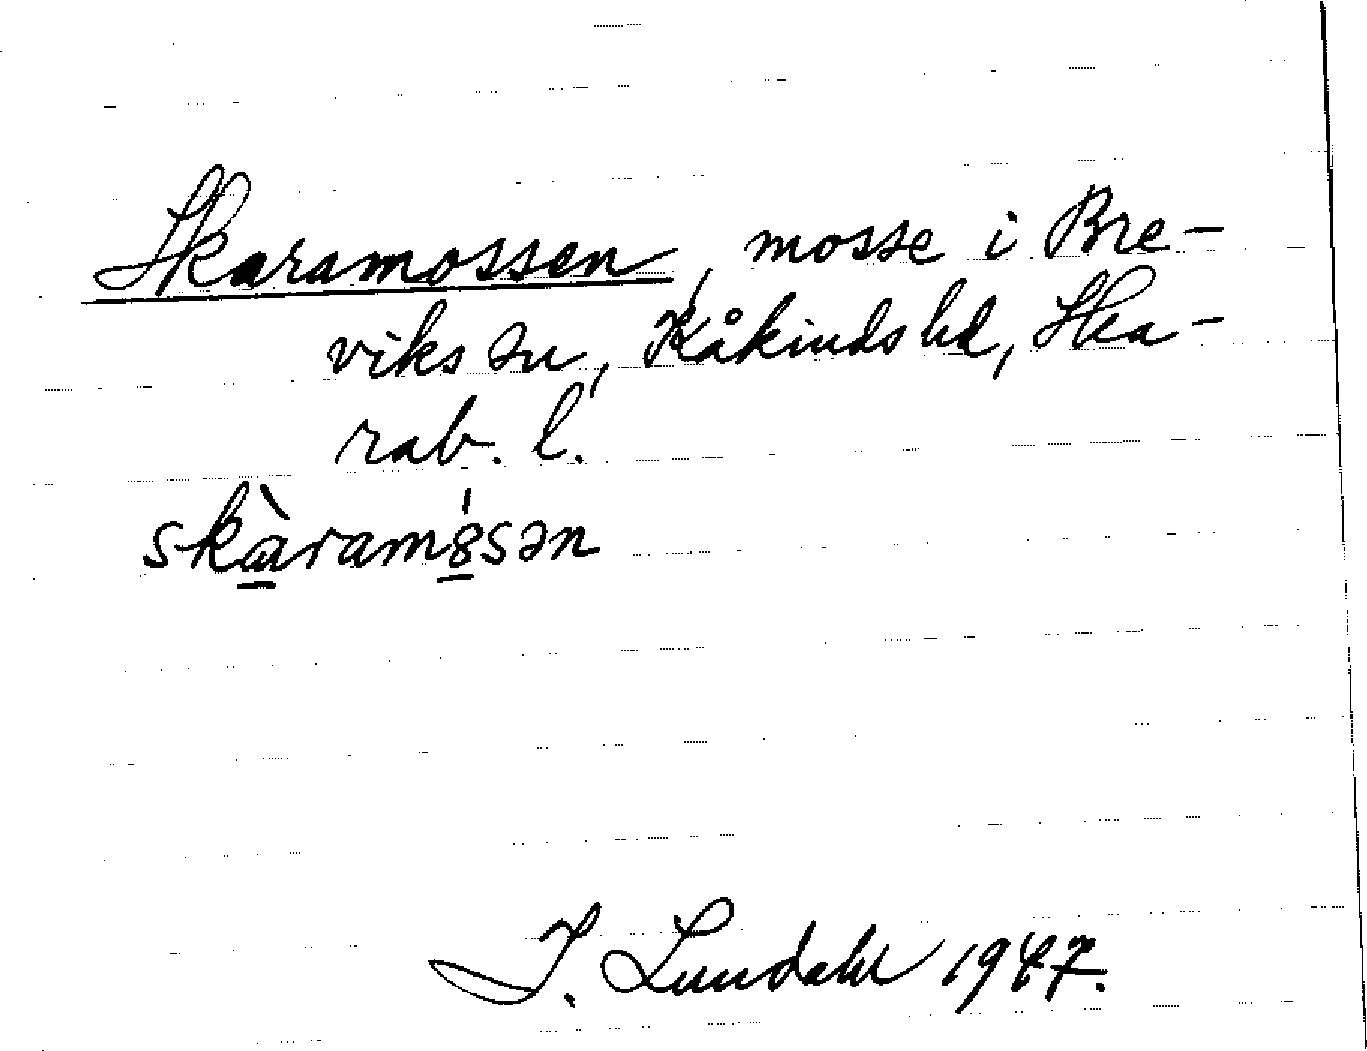 Skaramossen, mosse i Bre-
viks sn, Kåkinds hd, Ska-
rab. l.
skàram8́sən
I. Lundahl 1947.